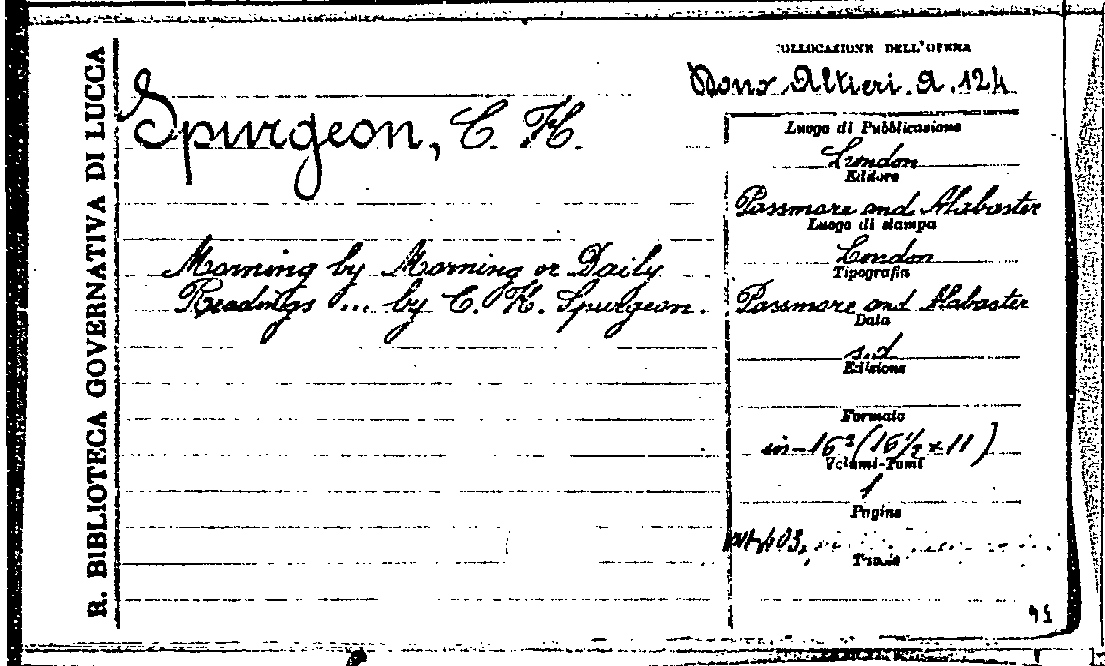 R. BIBLIOTECA GOVERNATIVA DI LUCCA
Spurgeon, C. H.
Morning by Morning or Daily
Readings ... by C. H. Spurgeon.
COLLOCAZIONE DELL'OPERA
Dono Altieri. A. 124
Luogo di Pubblicazione
London
Editore
Passmore and Alabaster
Luogo di stampa
London
Tipografia
Passmore and Alabaster
Data
s.d
Edizione
Formato
in-16º (16½ x 11)
Volumi-Tomi
1
Pagine
403,
Tavole